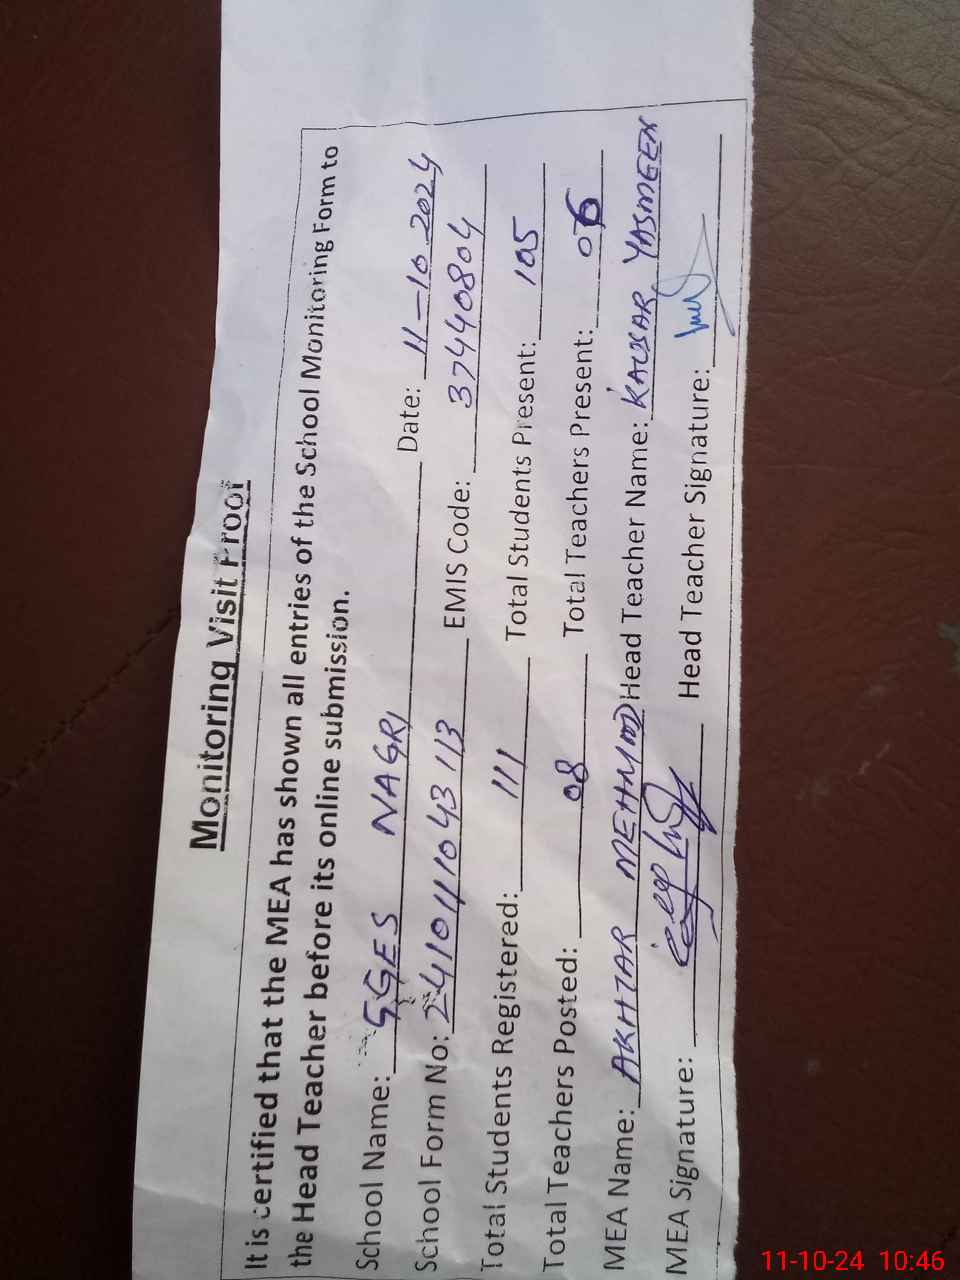 Monitoring Visit Proof
It is certified that the MEA has shown all entries of the School Monitoring Form to
the Head Teacher before its online submission.
School Name: GGES NAGRI Date: 11-10 2024
School Form No: 241011043113 EMIS Code: 37440804
Total Students Registered: 111 Total Students Present: 105
Total Teachers Posted: 08 Total Teachers Present: 06
MEA Name: AKHTAR MEHMOOD Head Teacher Name: KAUSAR YASMEEN
MEA Signature: Head Teacher Signature:
11-10-24 10:46